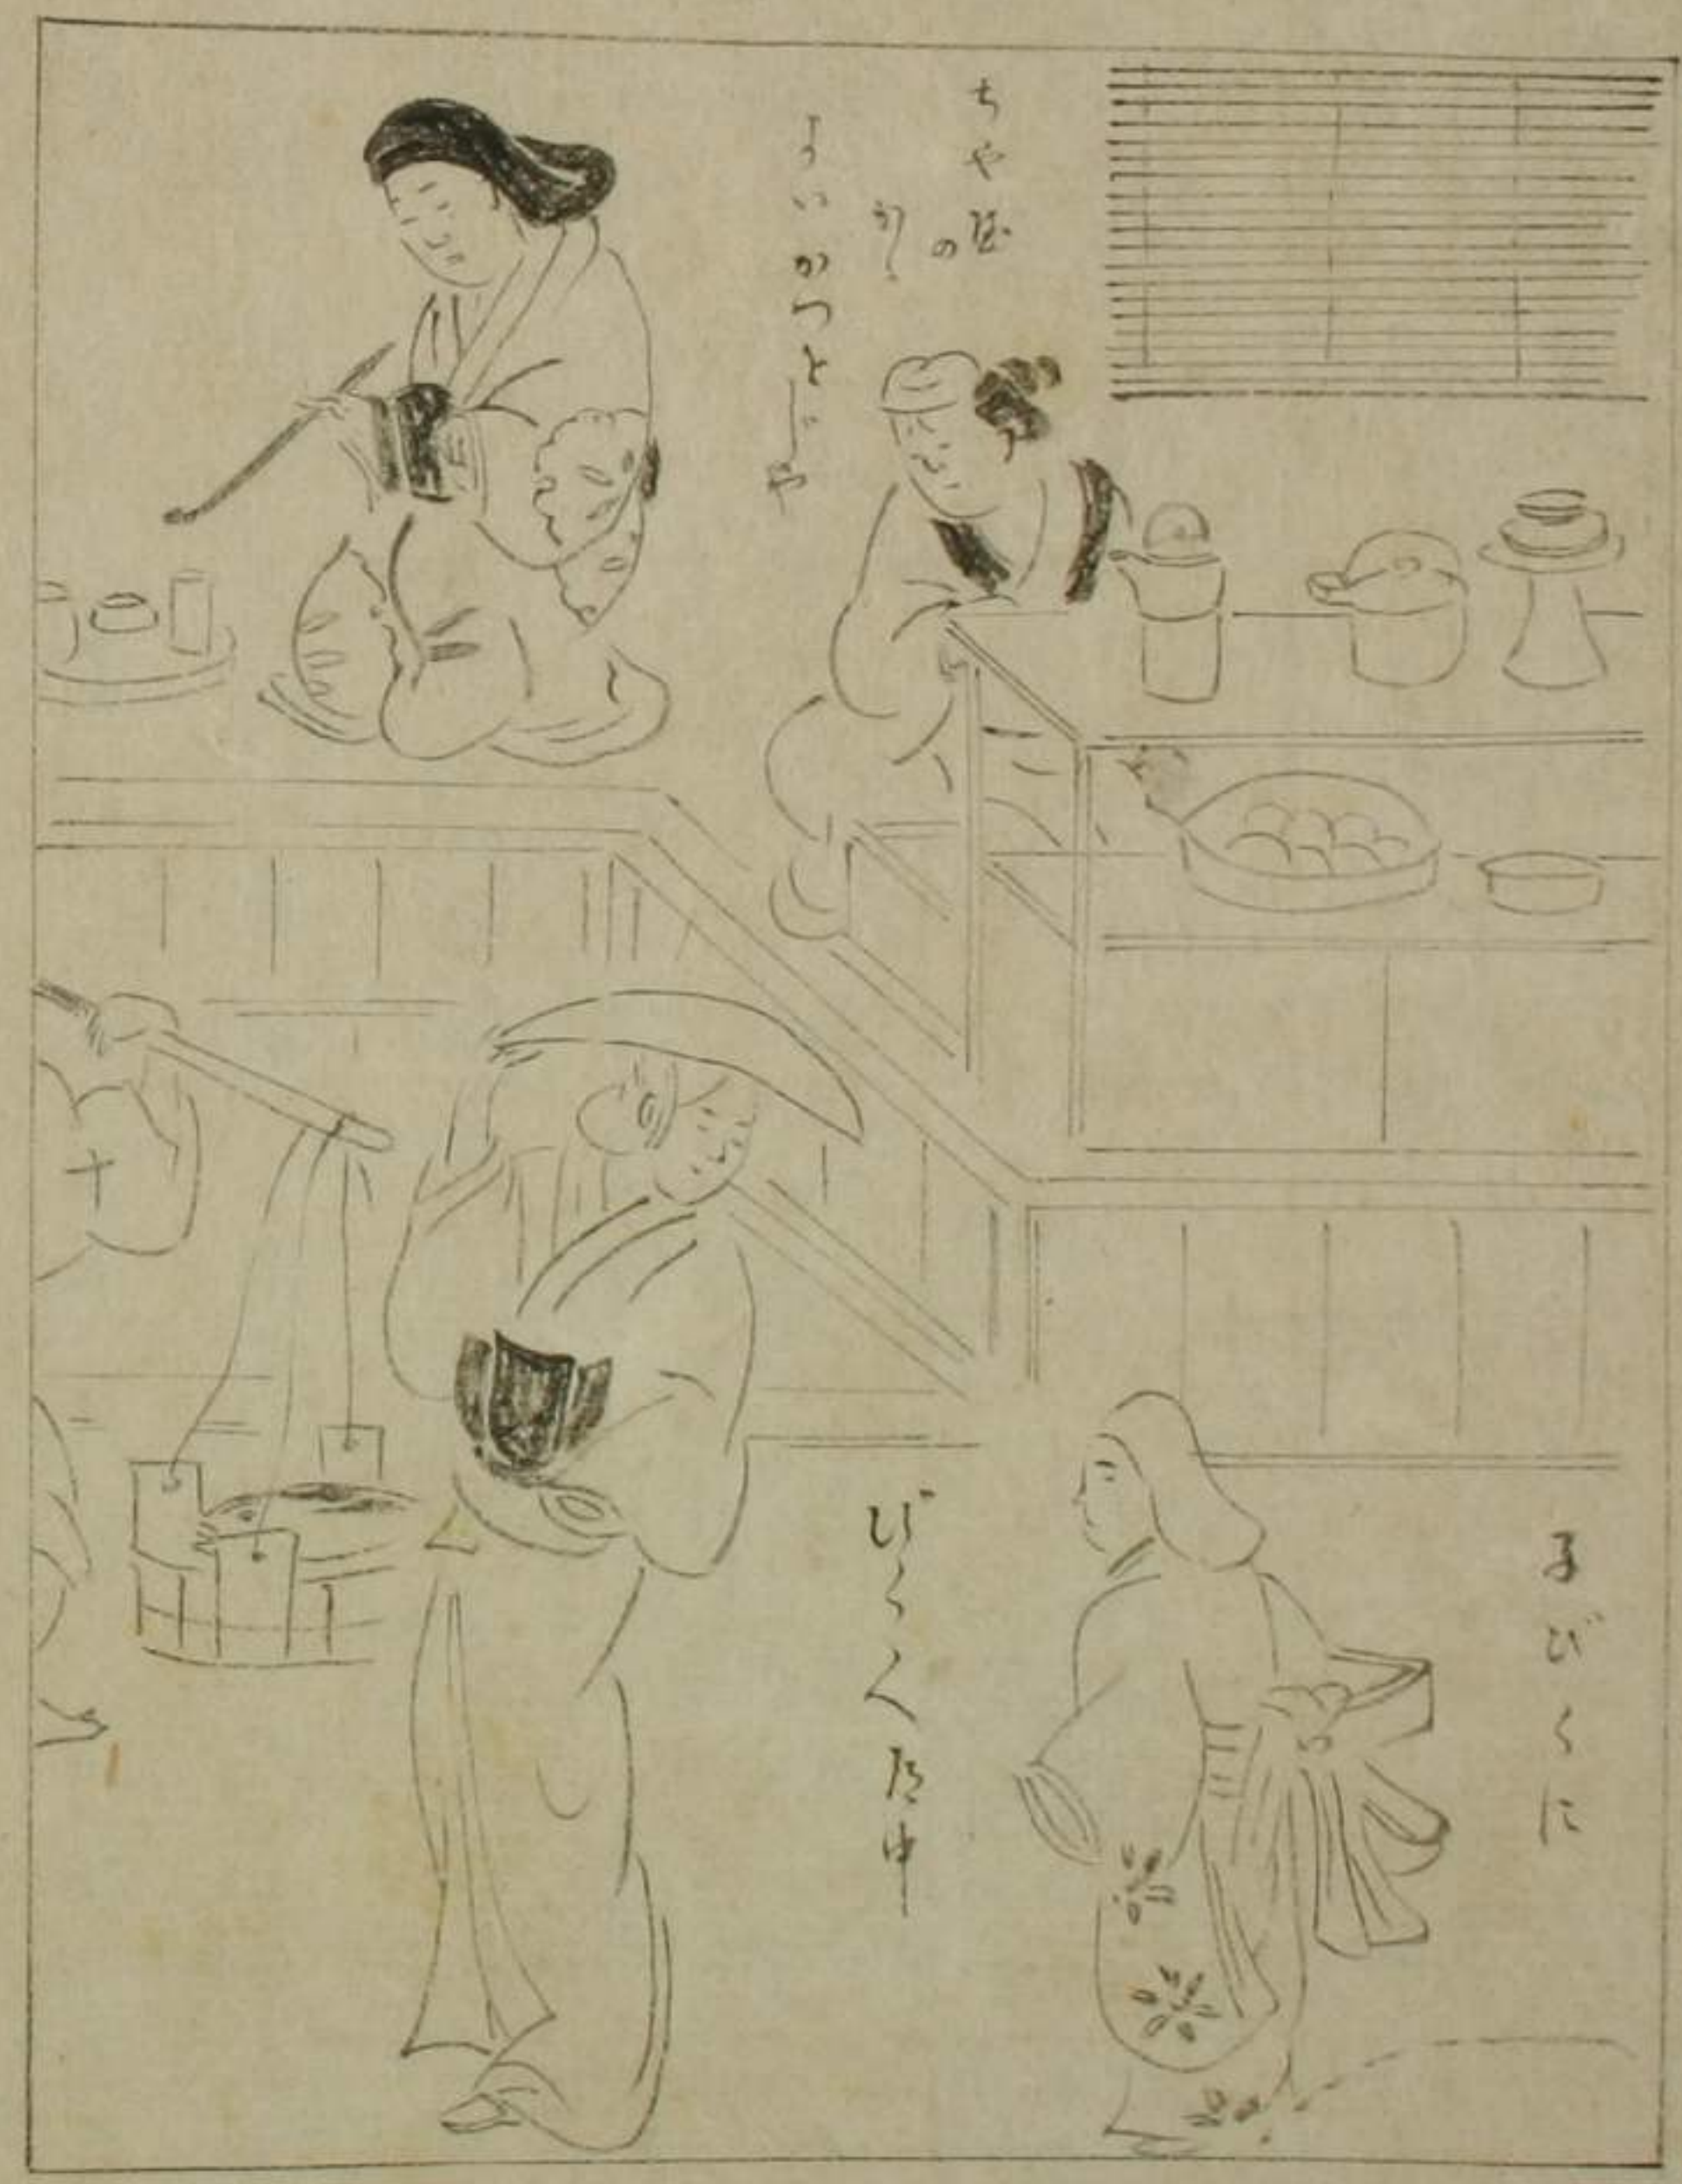 ちや屋の
かゝ
よいかつとじや
子びくに
びくに道中